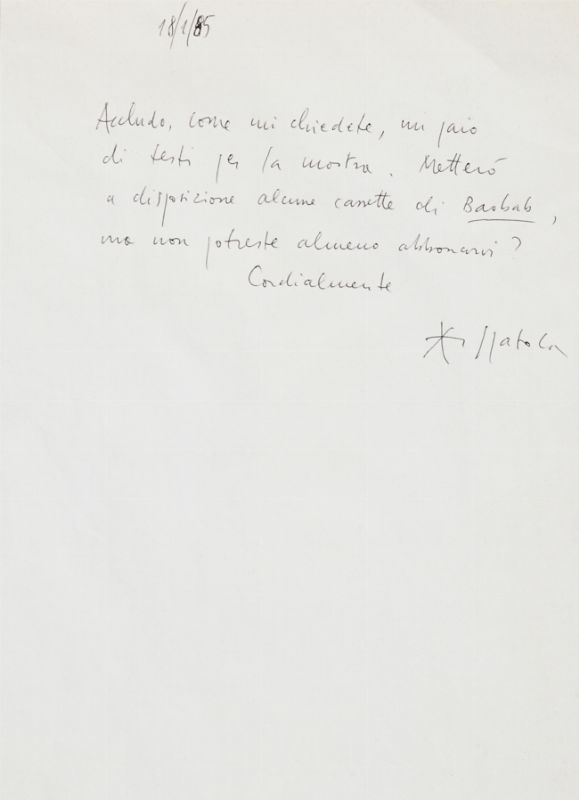 18/1/85
Accludo, come mi chiedete, un paio
di testi per la mostra. Metterò
a disposizione alcune cassette di Baobab,
ma non potreste almeno abbonarvi?
Cordialmente
Spatola